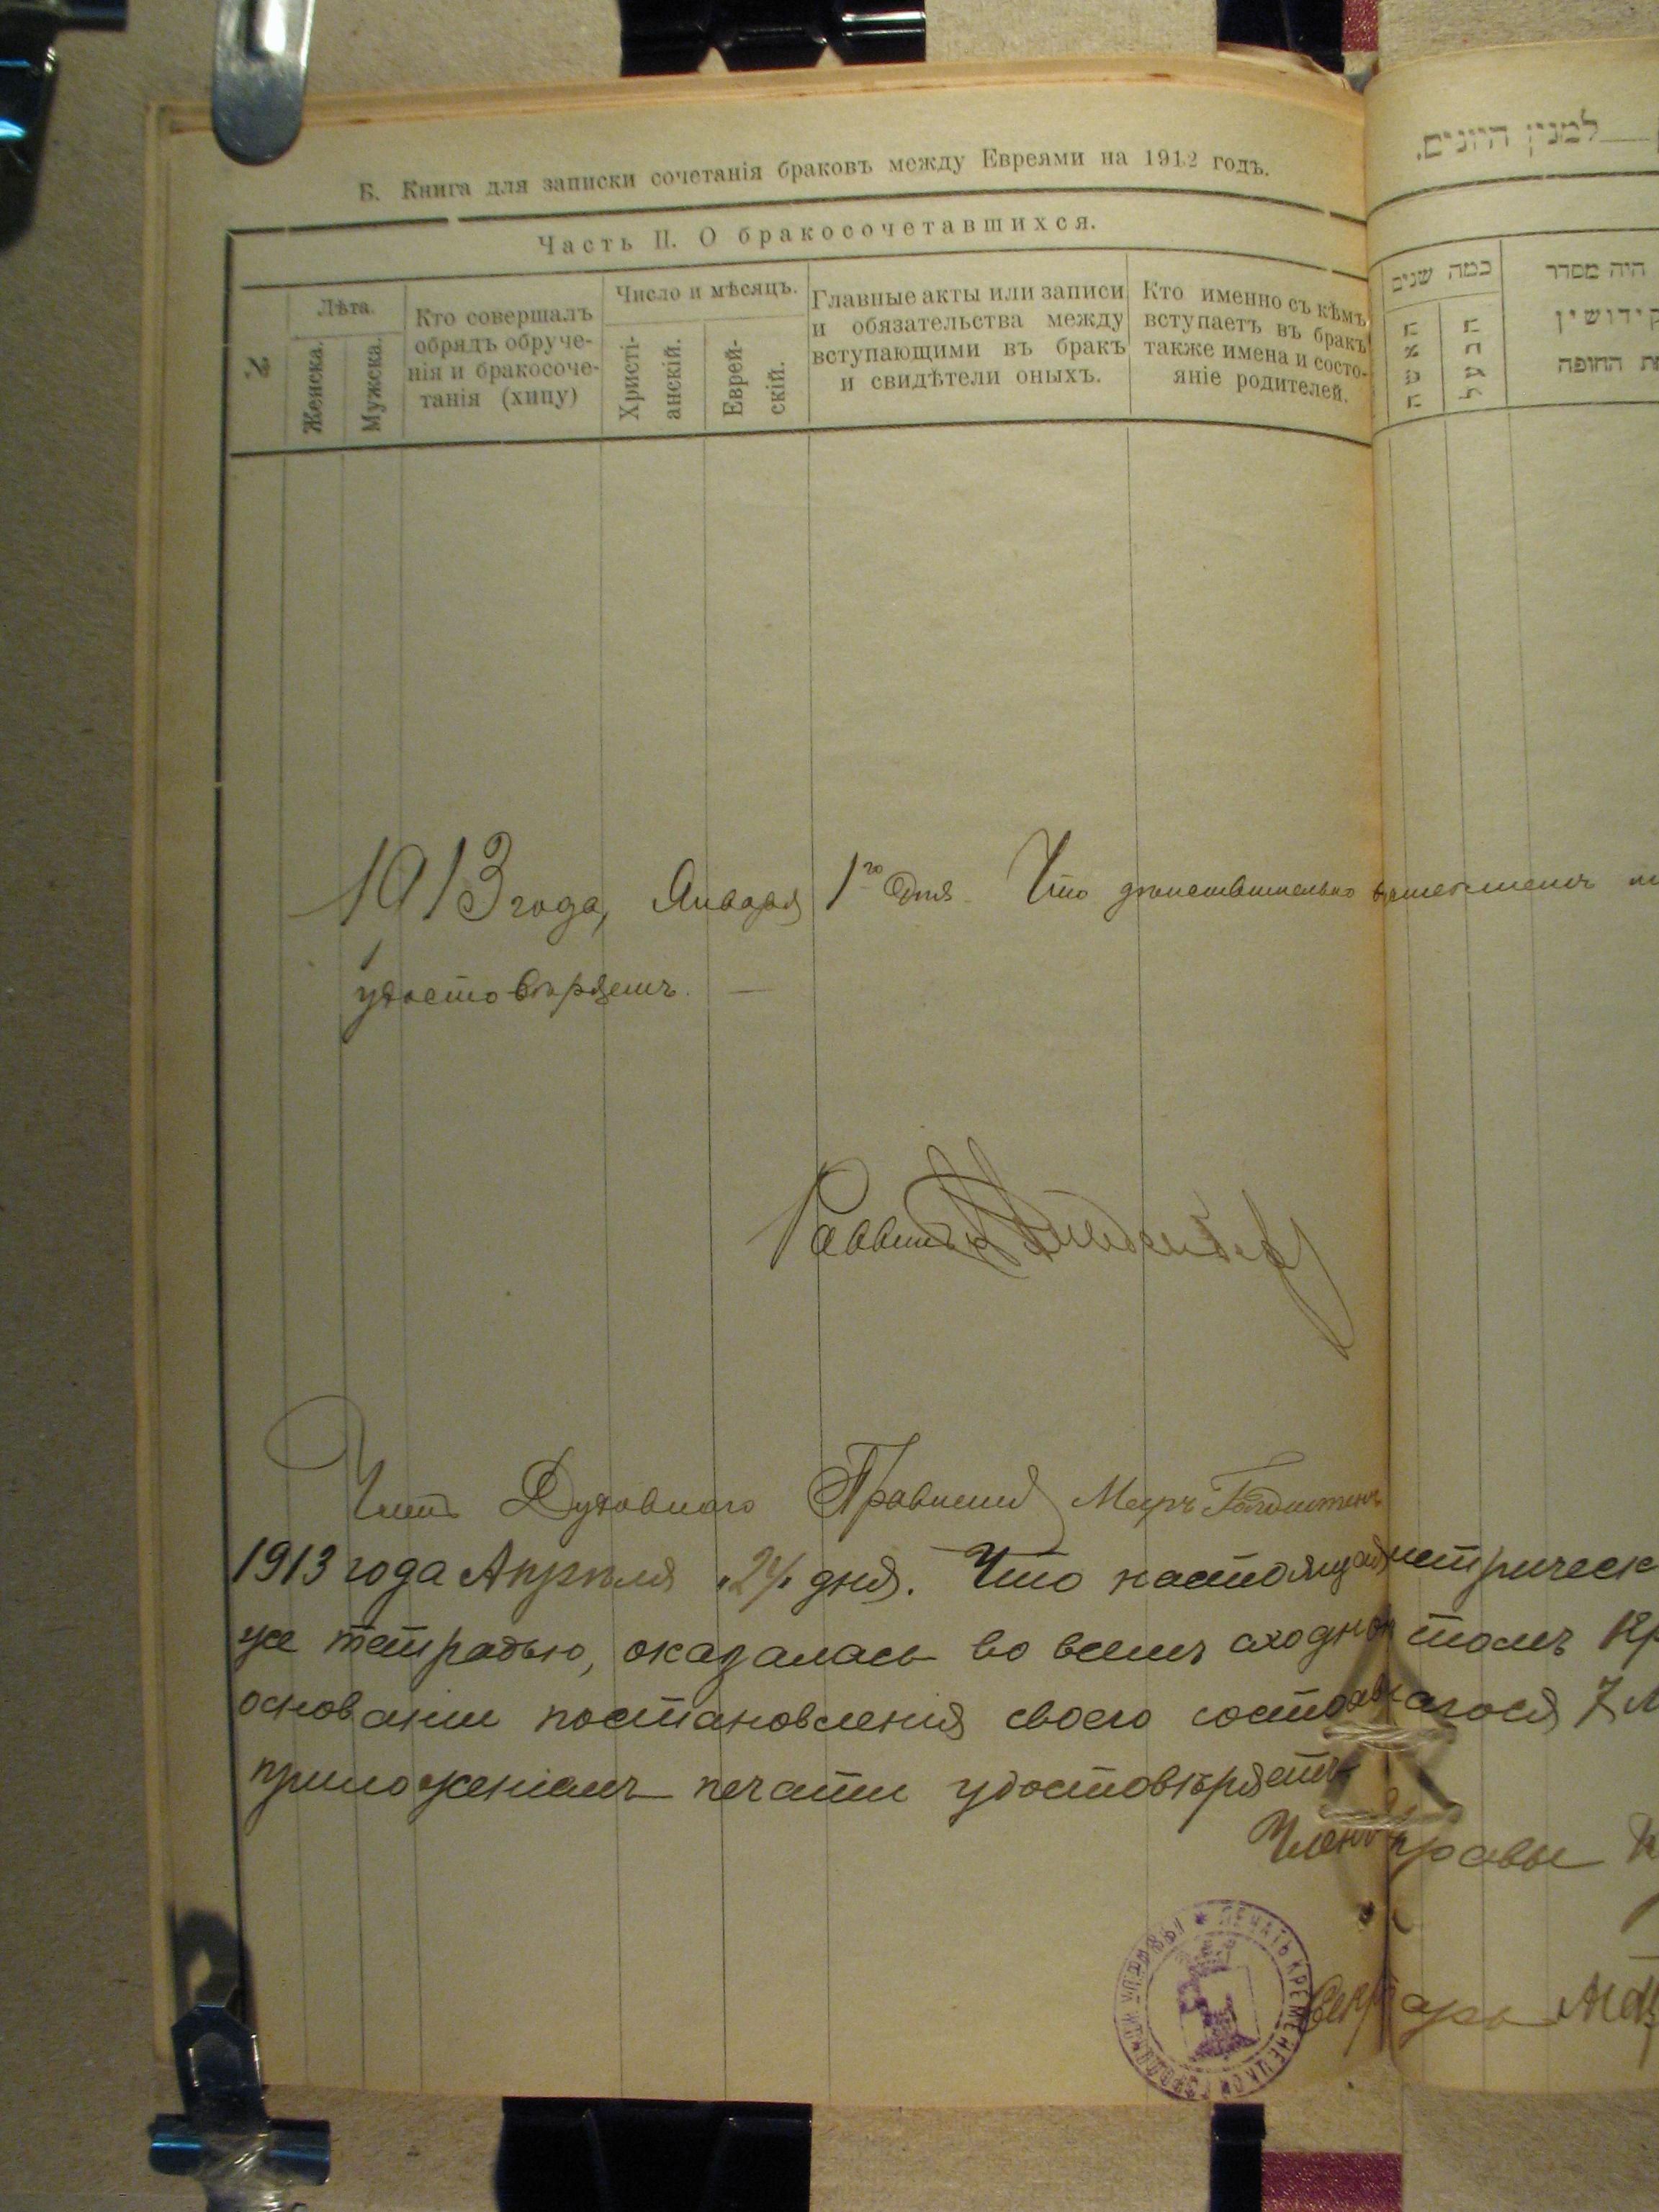 Б. Книга для записки сочетанія браковъ между Евреями на 1912 годъ.
Часть II. О бракосочетавшихся.
№
Лѣта.
Женска.
Мужска.
Кто совершалъ
обрядъ обруче-
нія и бракосоче-
танія (хипу)
Число и мѣсяцъ.
Христі-
анскій.
Еврей-
скій.
Главные акты или записи
и обязательства между
вступающими въ бракъ
и свидѣтели оныхъ.
Кто именно съ кѣмъ
вступаетъ въ бракъ
также имена и состо-
яніе родителей.
למנין היונים.
כמה שנים
האשה
הבעל
היה מסדר
קידושין
החופה
1913 года, Января 1го дня. Что
удостовѣряемъ. —
Раввинъ
Духовнаго Правленія Мееръ
1913 года Апрѣля "24" дня. Что настоящая метрическ
же тетрадью, оказалась во всемъ сходною
основаніи постановленія своего состоявшагося 7
приложеніемъ печати удостовѣряетъ
Членъ Управы
Секретарь
ПЕЧАТЬ КРЕМЕНЕЦКОЙ ГОРОДСКОЙ УПРАВЫ